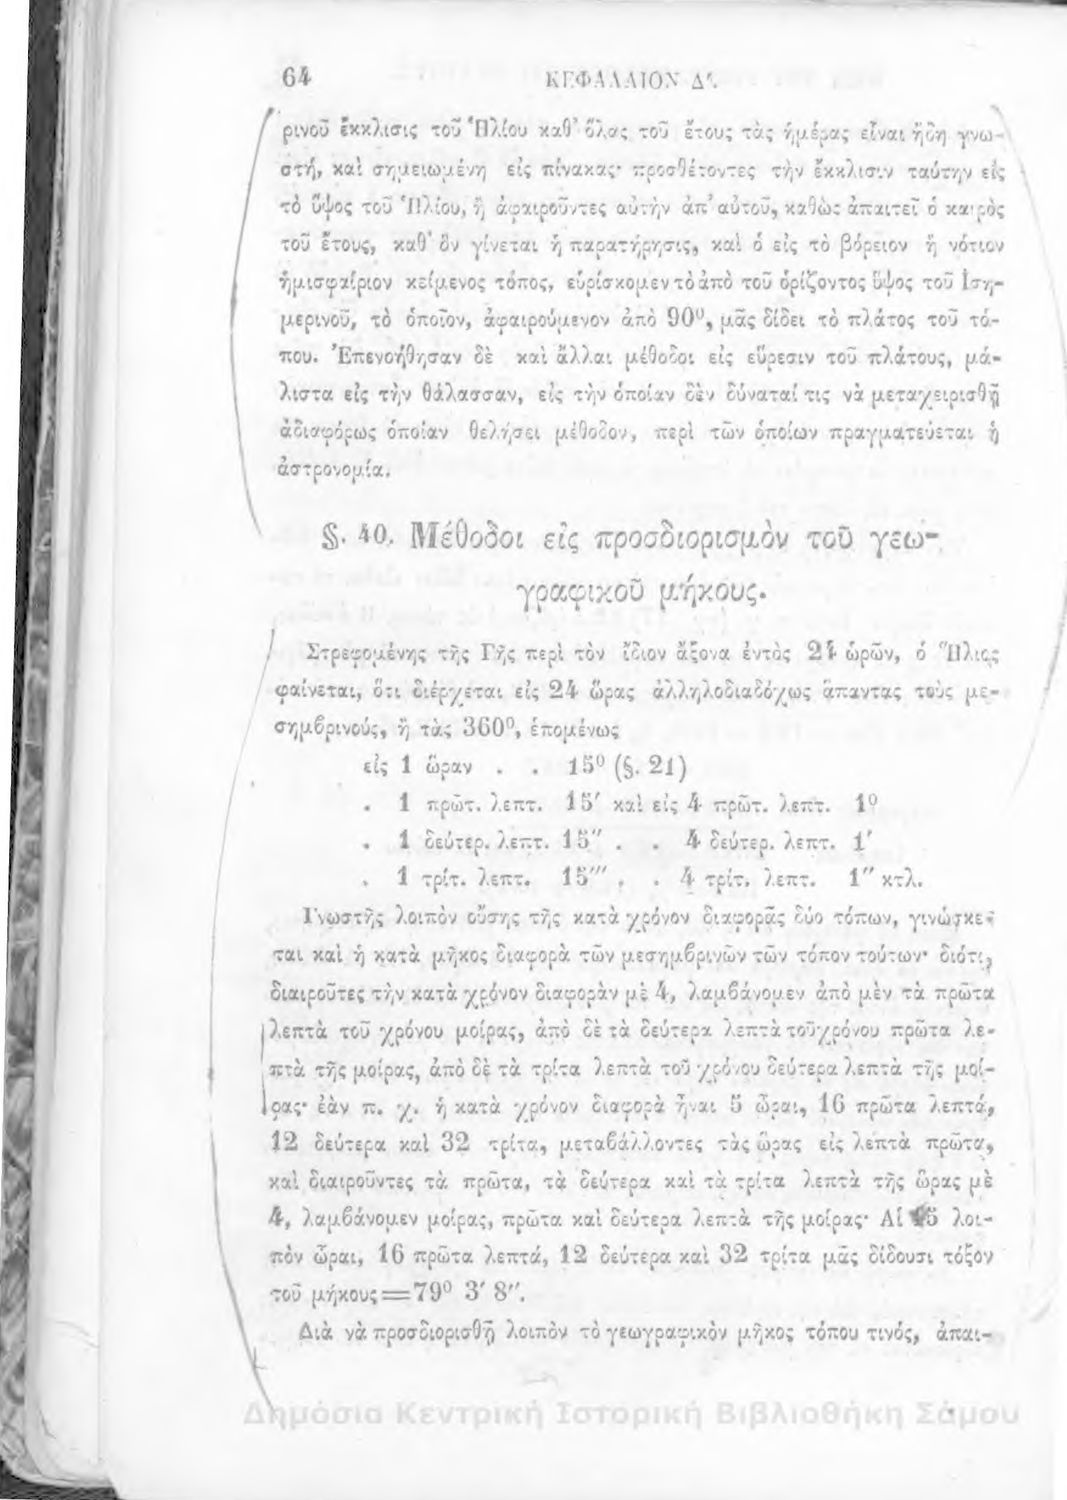 64 ΚΕΦΑΛΑΙΟΝ Δ'.
ρινοῦ ἔκκλισις τοῦ Ἡλίου καθ' ὅλας τοῦ ἔτους τὰς ἡμέρας εἶναι ἤδη γνω-
στή, καὶ σημειωμένη εἰς πίνακας· προσθέτοντες τὴν ἔκκλισιν ταύτην εἰς
τὸ ὕψος τοῦ Ἡλίου, ἢ ἀφαιροῦντες αὐτὴν ἀπ' αὐτοῦ, καθὼς ἀπαιτεῖ ὁ καιρὸς
τοῦ ἔτους, καθ' ὃν γίνεται ἡ παρατήρησις, καὶ ὁ εἰς τὸ βόρειον ἢ νότιον
ἡμισφαίριον κείμενος τόπος, εὑρίσκομεν τὸ ἀπὸ τοῦ ὁρίζοντος ὕψος τοῦ Ἰση-
μερινοῦ, τὸ ὁποῖον, ἀφαιρούμενον ἀπὸ 90⁰, μᾶς δίδει τὸ πλάτος τοῦ τό-
που. Ἐπενοήθησαν δὲ καὶ ἄλλαι μέθοδοι εἰς εὕρεσιν τοῦ πλάτους, μά-
λιστα εἰς τὴν θάλασσαν, εἰς τὴν ὁποίαν δὲν δύναταί τις νὰ μεταχειρισθῇ
ἀδιαφόρως ὁποίαν θελήσει μέθοδον, περὶ τῶν ὁποίων πραγματεύεται ἡ
ἀστρονομία.
§. 40. Μέθοδοι εἰς προσδιορισμὸν τοῦ γεω-
γραφικοῦ μήκους.
Στρεφομένης τῆς Γῆς περὶ τὸν ἴδιον ἄξονα ἐντὸς 24 ὡρῶν, ὁ Ἥλιος
φαίνεται, ὅτι διέρχεται εἰς 24 ὥρας ἀλληλοδιαδόχως ἅπαντας τοὺς με-
σημβρινούς, ἢ τὰς 360⁰, ἑπομένως
εἰς 1 ὥραν . . 15⁰ (§. 21)
. 1 πρῶτ. λεπτ. 15′ καὶ εἰς 4 πρῶτ. λεπτ. 1⁰
. 1 δεύτερ. λεπτ. 15″ . . 4 δεύτερ. λεπτ. 1′
. 1 τρίτ. λεπτ. 15‴ . . 4 τρίτ. λεπτ. 1″ κτλ.
Γνωστῆς λοιπὸν οὔσης τῆς κατὰ χρόνον διαφορᾶς δύο τόπων, γινώσκε-
ται καὶ ἡ κατὰ μῆκος διαφορὰ τῶν μεσημβρινῶν τῶν τόπον τούτων· διότι,
διαιροῦτες τὴν κατὰ χρόνον διαφορὰν μὲ 4, λαμβάνομεν ἀπὸ μὲν τὰ πρῶτα
λεπτὰ τοῦ χρόνου μοίρας, ἀπὸ δὲ τὰ δεύτερα λεπτὰ τοῦ χρόνου πρῶτα λε-
πτὰ τῆς μοίρας, ἀπὸ δὲ τὰ τρίτα λεπτὰ τοῦ χρόνου δεύτερα λεπτὰ τῆς μοί-
ρας· ἐὰν π. χ. ἡ κατὰ χρόνον διαφορὰ ἦναι 5 ὧραι, 16 πρῶτα λεπτά,
12 δεύτερα καὶ 32 τρίτα, μεταβάλλοντες τὰς ὥρας εἰς λεπτὰ πρῶτα,
καὶ διαιροῦντες τὰ πρῶτα, τὰ δεύτερα καὶ τὰ τρίτα λεπτὰ τῆς ὥρας μὲ
4, λαμβάνομεν μοίρας, πρῶτα καὶ δεύτερα λεπτὰ τῆς μοίρας· Αἱ 5 λοι-
πὸν ὧραι, 16 πρῶτα λεπτά, 12 δεύτερα καὶ 32 τρίτα μᾶς δίδουσι τόξον
τοῦ μήκους=79⁰ 3′ 8″.
Διὰ νὰ προσδιορισθῇ λοιπὸν τὸ γεωγραφικὸν μῆκος τόπου τινός, ἀπαι-
Δημόσια Κεντρική Ιστορική Βιβλιοθήκη Σάμου